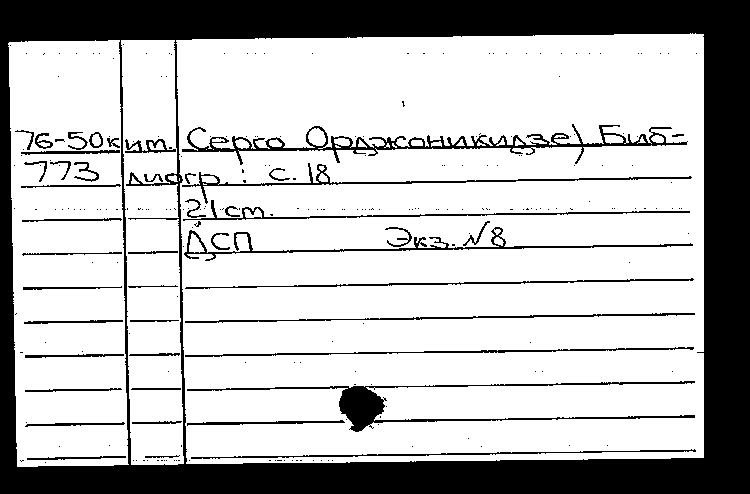 76-50кит. Серго Орджоникидзе) Биб-
773 лиогр.: с. 18
21 см.
ДСП Экз. №8